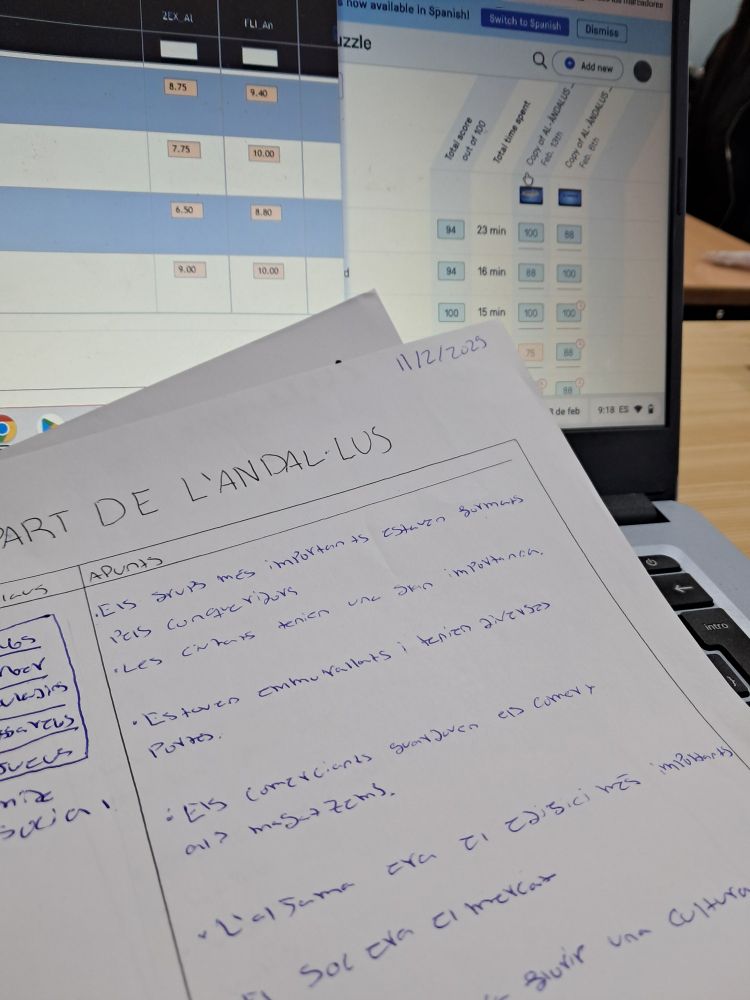 2EX_Al
FLI_An
8.75
9.40
7.75
10.00
6.50
8.80
9.00
10.00
s now available in Spanish!
Switch to Spanish
Dismiss
uzzle
Add new
Total score
out of 100
Total time spent
Copy of AL-ÀNDALUS –
Feb. 13th
Copy of AL-ÀNDALUS –
Feb. 6th
94 23 min 100 88
94 16 min 88 100
100 15 min 100 100
75 88
88
de feb 9:18 ES
intro
11/2/2025
PART DE L'ANDAL·LUS
APUNTS
· Els grups més importants estaven formats
pels conqueridors
· Les ciutats tenien una gran importancia.
· Estaven emmurallats i tenien diverses
Portes.
· Els comerciants guardaven els comerç
als magatzems.
· L'aljama era el edifici més important
El soc era el mercat
una cultura
social